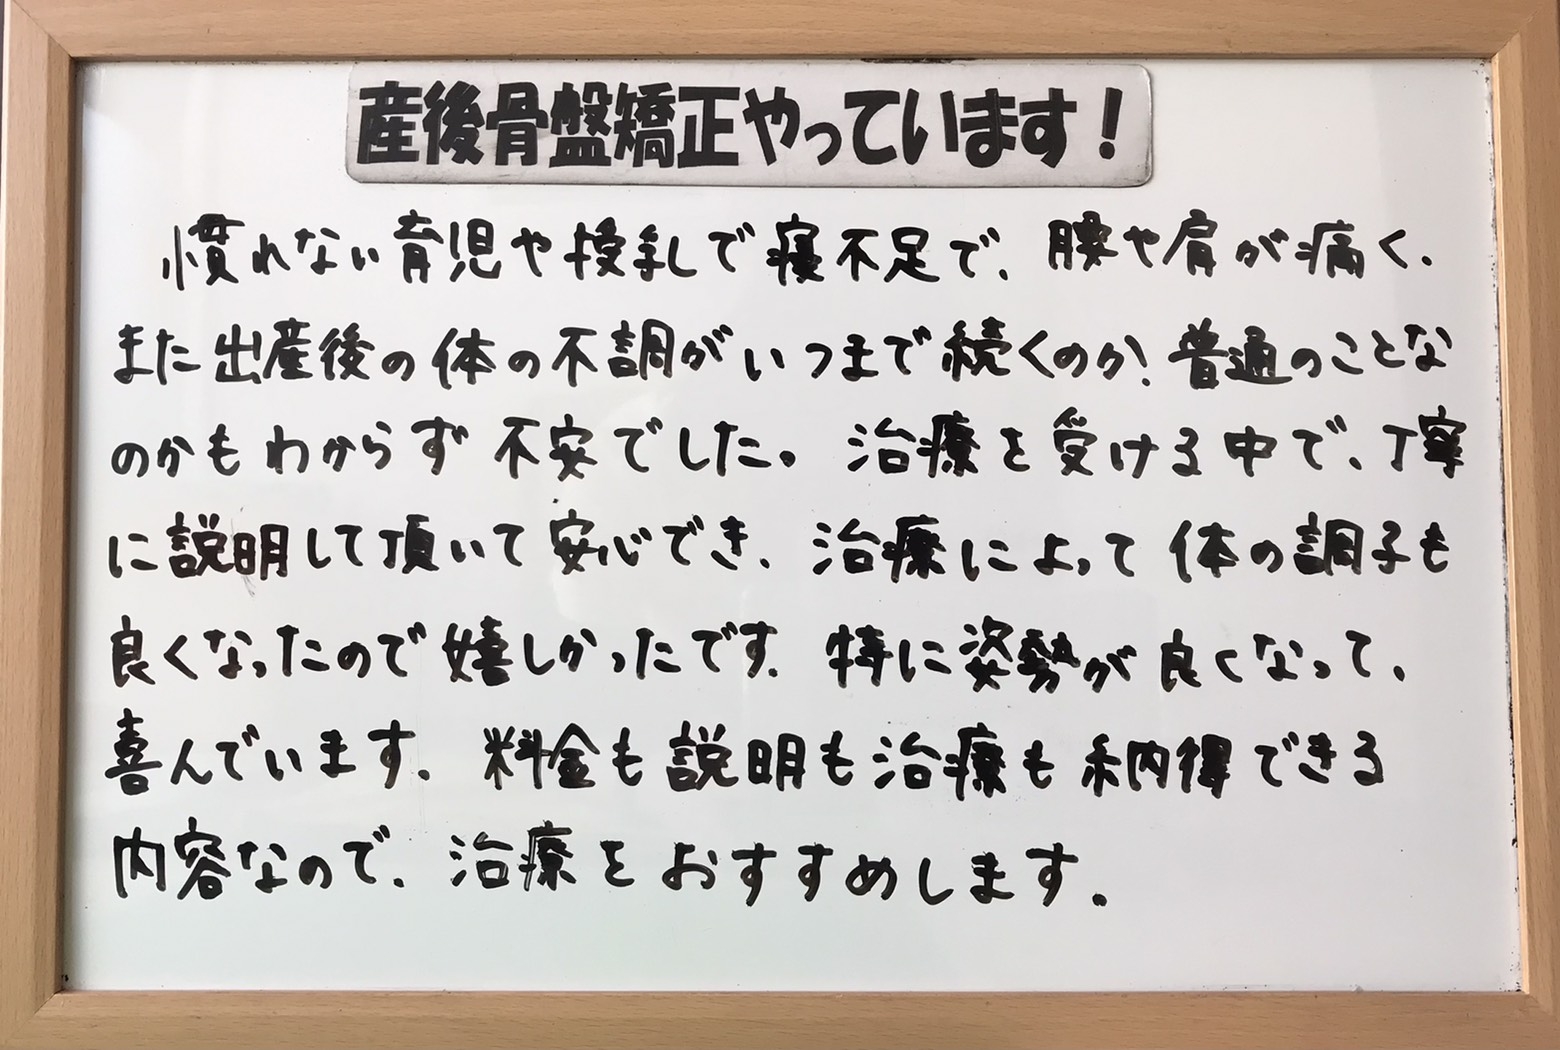 産後骨盤矯正やっています!
慣れない育児や授乳で寝不足で、腰や肩が痛く、
また出産後の体の不調がいつまで続くのか!普通のことな
のかもわからず不安でした。治療を受ける中で、丁寧
に説明して頂いて安心でき、治療によって体の調子も
良くなったので嬉しかったです。特に姿勢が良くなって、
喜んでいます。料金も説明も治療も納得できる
内容なので、治療をおすすめします。